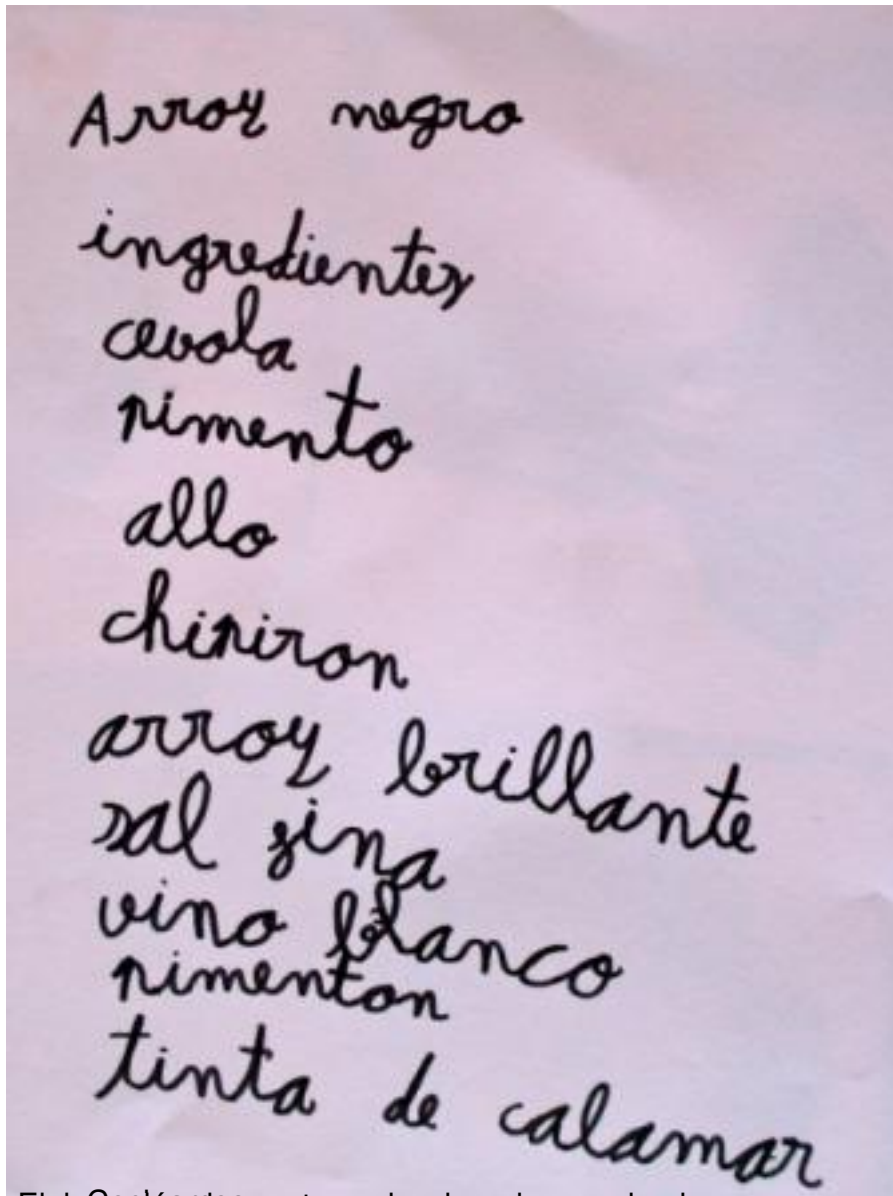 Arroz negro
ingredientes
cevola
pimento
allo
chipiron
arroz brillante
sal fina
vino blanco
pimenton
tinta de calamar